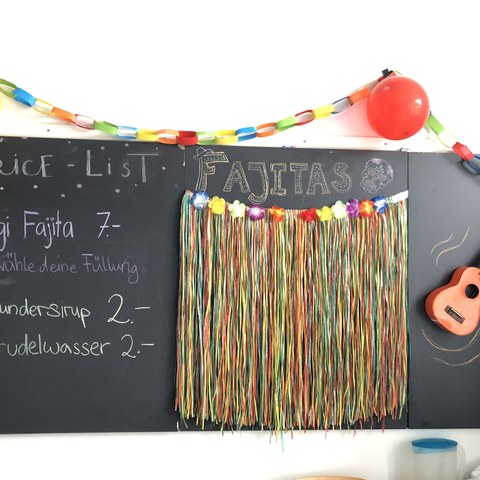 RICE - LIST
FAJITAS
gi Fajita 7.-
wähle deine Füllung
undersirup 2.-
rudelwasser 2.-